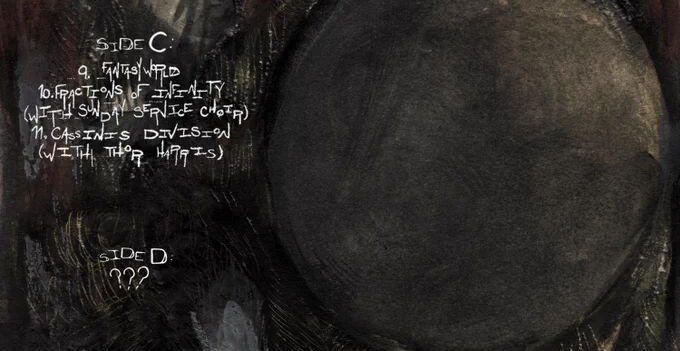 SIDE C:
9. FANTASYWORLD
10. FRACTIONS OF INFINITY
(WITH SUNDAY SERVICE CHOIR)
11. CASSINI'S DIVISION
(WITH THOR HARRIS)
SIDE D:
???